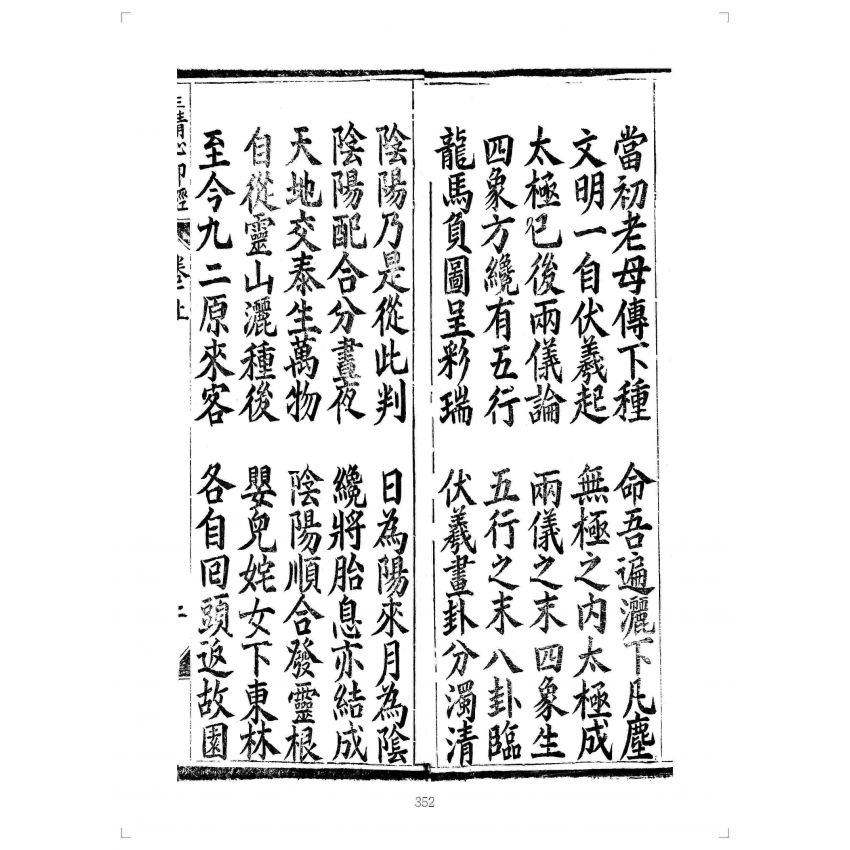 當初老母傳下種　命吾遍灑下凡塵
文明一自伏羲起　無極之内太極成
太極已後兩儀論　兩儀之末四象生
四象方纔有五行　五行之末八卦臨
龍馬負圖呈彩瑞　伏羲畫卦分濁清
陰陽乃是從此判　日為陽來月為陰
陰陽配合分晝夜　纔將胎息亦結成
天地交泰生萬物　陰陽順合發靈根
自從靈山灑種後　嬰兒姹女下東林
至今九二原來客　各自回頭返故園
心印經　卷上
352